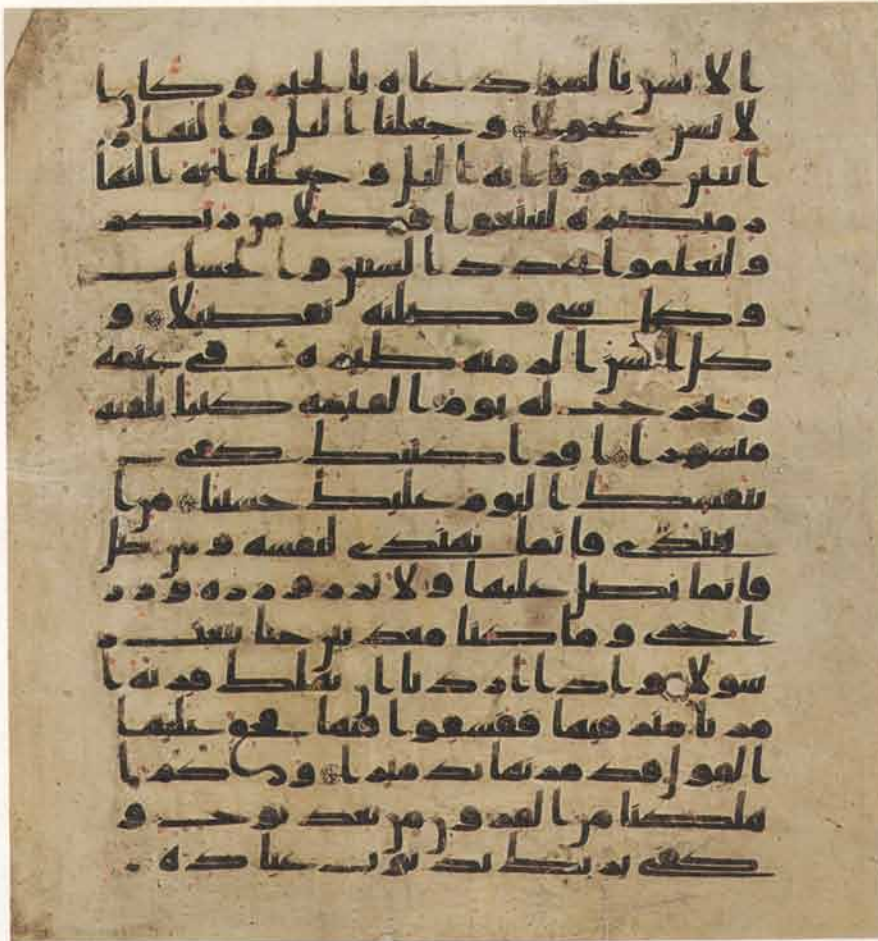 ا لانسن بالسو دعاه بالخير و كان ا
لانسن عجولا و جعلنا اليل و النهار
ايتين فمحونا ايه اليل و جعلنا ايه النها
ر مبصره لتبتغوا فضلا من ربكم
و لتعلموا عدد السنين و الحساب
و كل شي فصلنه تفصيلا و
كل انسن الزمنه طيره في عنقه
و نخرج له يوم القيمه كتبا يلقيه
منشورا اقرا كتبك كفى
بنفسك اليوم عليك حسيبا من ا
هتدى فانما يهتدى لنفسه و من ضل
فانما يضل عليها و لا تزر وزره وزر
اخرى و ما كنا معذبين حتا نبعث ر
سولا و اذا اردنا ان نهلك قريه ا
مرنا مترفيها ففسقوا فيها فحق عليها
القول فدمرنها تدميرا و كم ا
هلكنا من القرون من بعد نوح و
كفى بربك بذنوب عباده